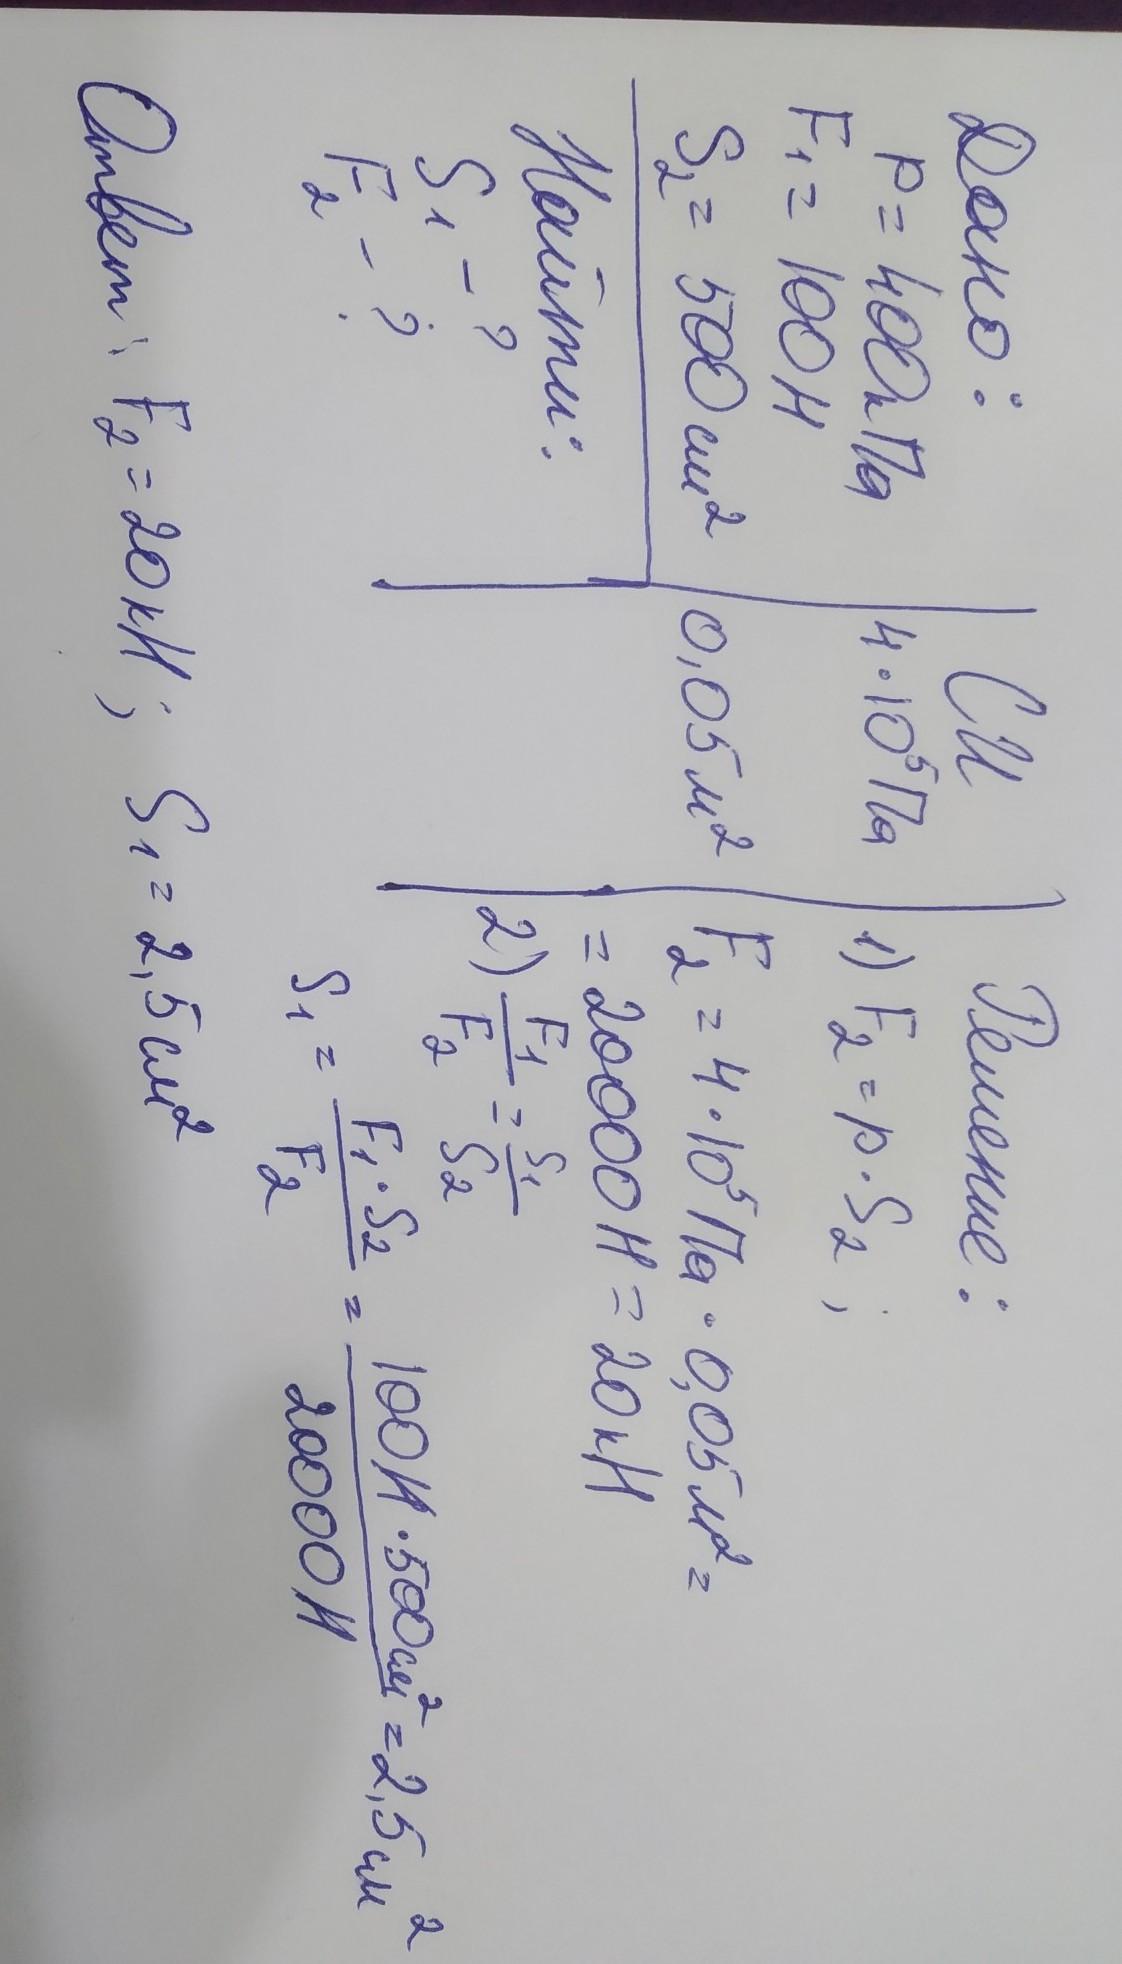 Дано:
p = 400кПа
F₁ = 100Н
S₂ = 500см²
Найти:
S₁ - ?
F₂ - ?
СИ
4·10⁵Па
0,05м²
Решение:
1) F₂ = p·S₂;
F₂ = 4·10⁵Па·0,05м² =
= 20000Н = 20кН
2) F₁/F₂ = S₁/S₂
S₁ = F₁·S₂/F₂ = 100Н·500см²/20000Н = 2,5см²
Ответ: F₂ = 20кН; S₁ = 2,5см²